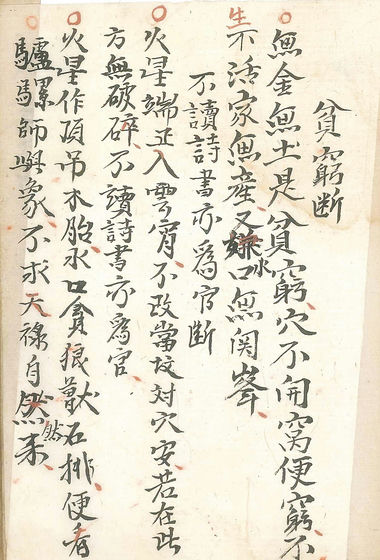 貧窮断
無金無土是貧窮穴不開窩便窮不
生不活家無產又嫌水口無関峯
不讀詩書亦為官断
火星端正入雲霄不改當坟対穴安若在此
方無破碎不讀詩書亦為官
火星作項吊水胎水口貪狼獸石排便看
驢騾師與象不求天祿自然来
然